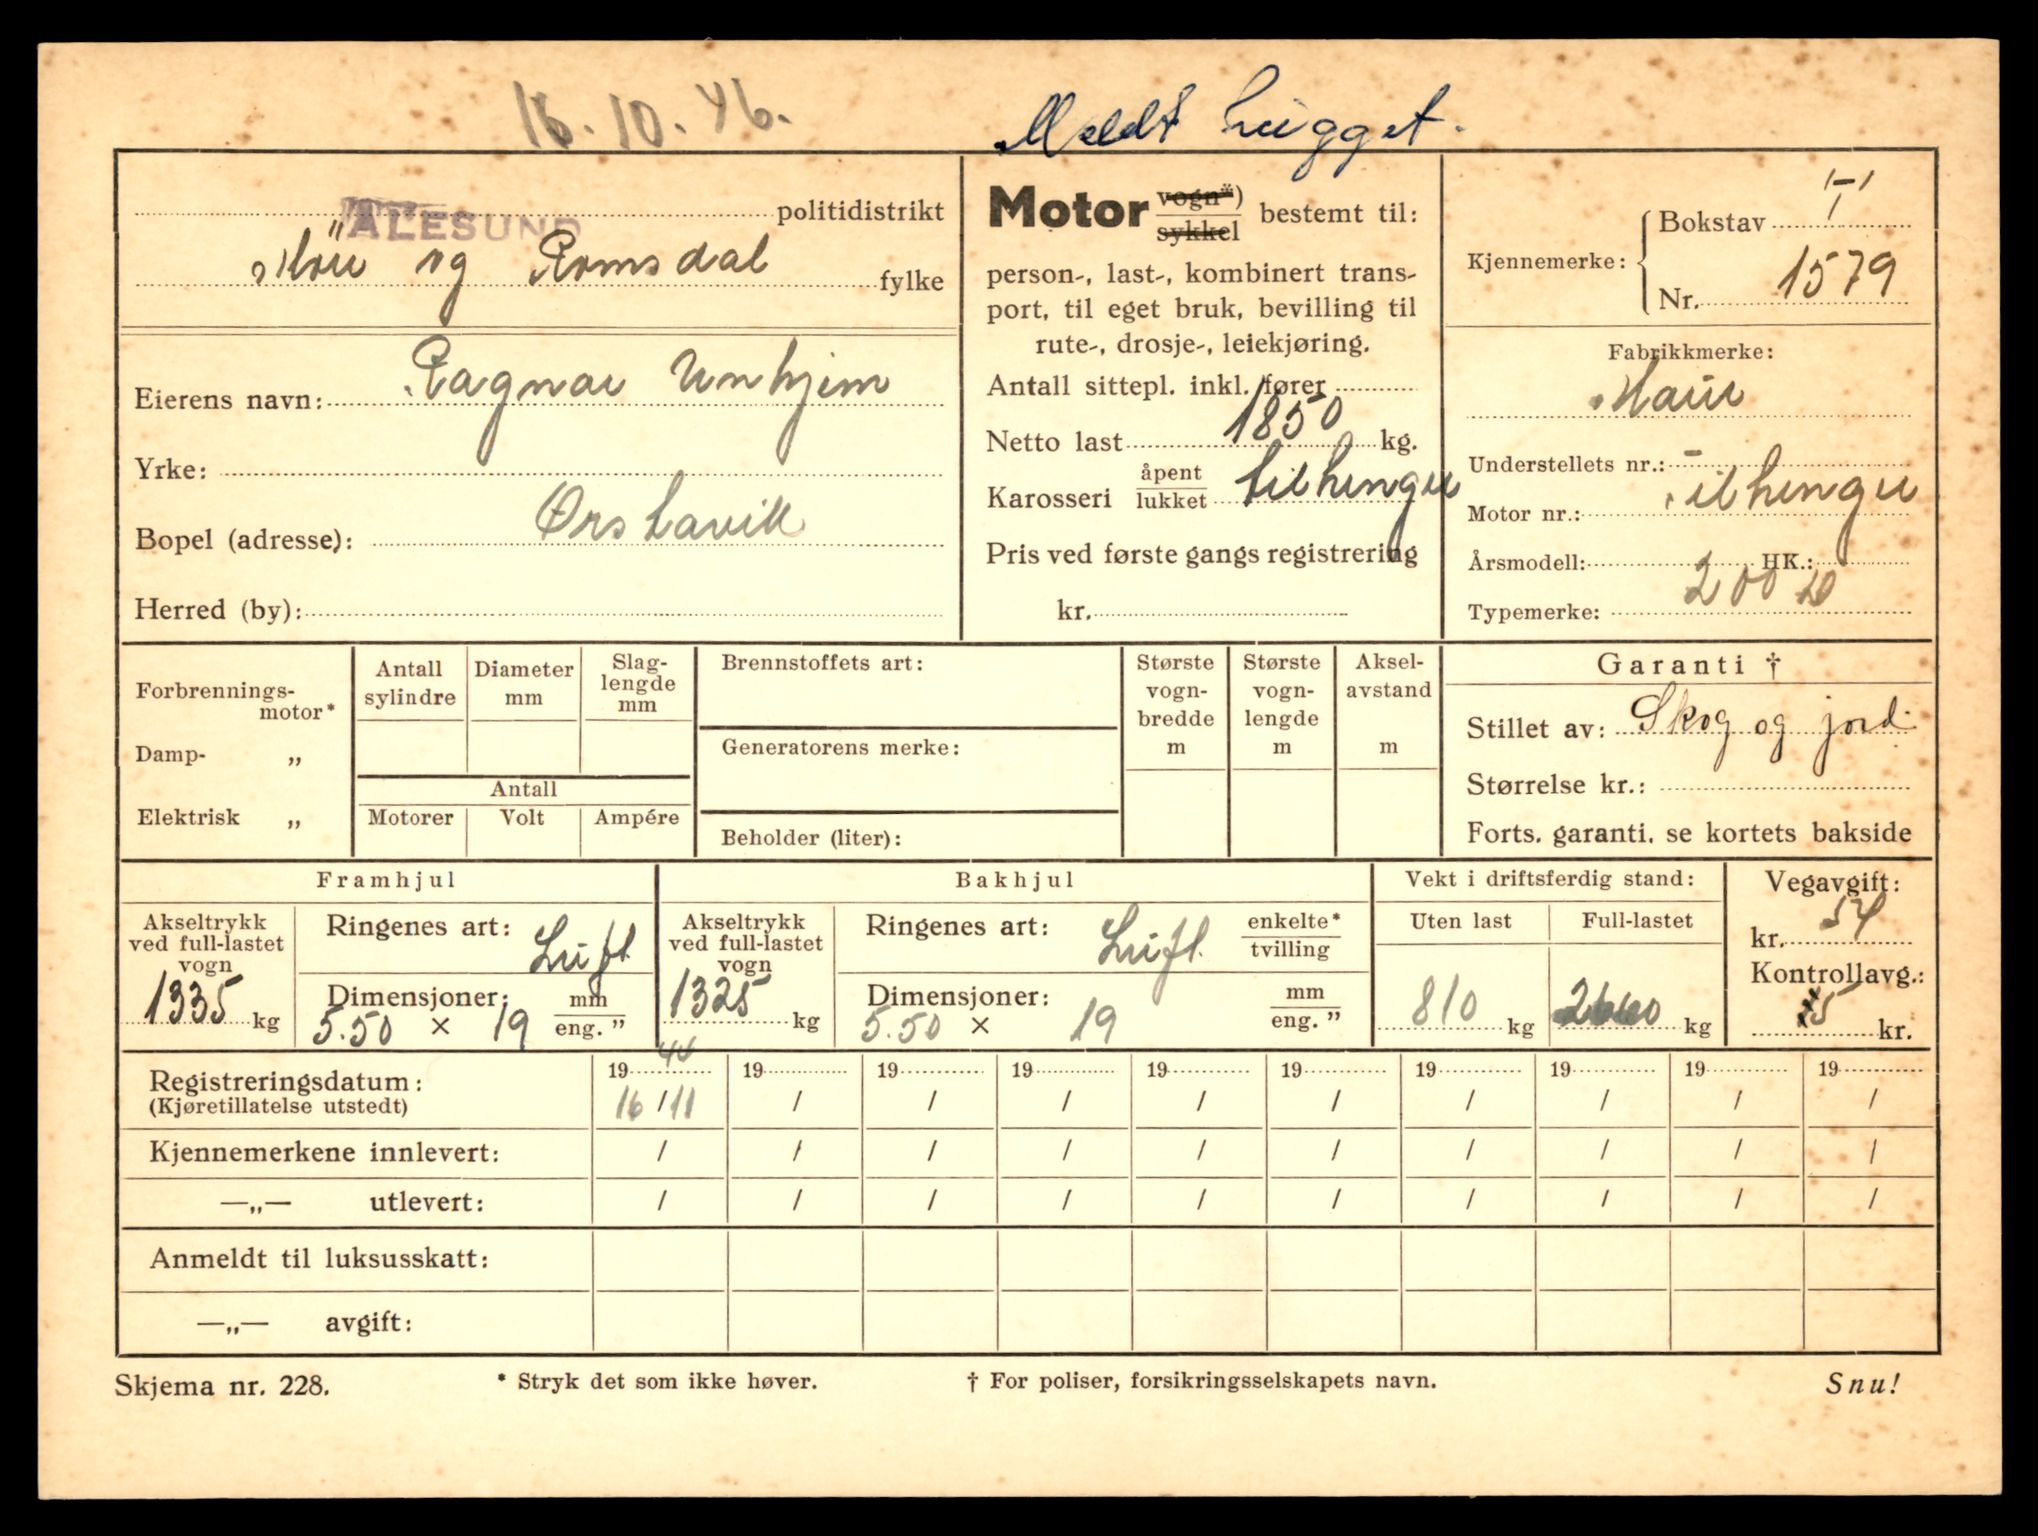 16.10.46. Meldt hugget.
ÅLESUND politidistrikt
Møre og Romsdal fylke
Eierens navn: Ragnar Unhjem
Yrke:
Bopel (adresse): Ørstavik
Herred (by):
Motor vogn*) sykkel bestemt til:
person-, last-, kombinert trans-
port, til eget bruk, bevilling til
rute-, drosje-, leiekjøring.
Antall sittepl. inkl. fører
Netto last 1850 kg.
Karosseri åpent lukket tilhenger
Pris ved første gangs registrering
kr.
Kjennemerke: Bokstav T
Nr. 1579
Fabrikkmerke:
Understellets nr.: -
Motor nr.: Tilhenger
Årsmodell: HK.:
Typemerke: 200
Forbrennings-
motor*
Damp- „
Elektrisk „
Antall
sylindre
Diameter
mm
Slag-
lengde
mm
Antall
Motorer Volt Ampére
Brennstoffets art:
Generatorens merke:
Beholder (liter):
Største
vogn-
bredde
m
Største
vogn-
lengde
m
Aksel-
avstand
m
Garanti †
Stillet av: Skog og jord
Størrelse kr.:
Forts. garanti, se kortets bakside
Framhjul
Akseltrykk
ved full-lastet
vogn
1335 kg
Ringenes art: Luft
Dimensjoner: mm
5.50 × 19 eng. "
Bakhjul
Akseltrykk
ved full-lastet
vogn
1325 kg
Ringenes art: Luft enkelte*
tvilling
Dimensjoner: mm
5.50 × 19 eng. "
Vekt i driftsferdig stand:
Uten last Full-lastet
810 kg 2660 kg
Vegavgift:
kr. 54
Kontrollavg.:
kr.
Registreringsdatum: 1944 19 19 19 19 19 19 19 19 19
(Kjøretillatelse utstedt) 16/11 / / / / / / / / /
Kjennemerkene innlevert: / / / / / / / / / /
—„— utlevert: / / / / / / / / / /
Anmeldt til luksusskatt:
—„— avgift:
Skjema nr. 228. * Stryk det som ikke høver. † For poliser, forsikringsselskapets navn. Snu!